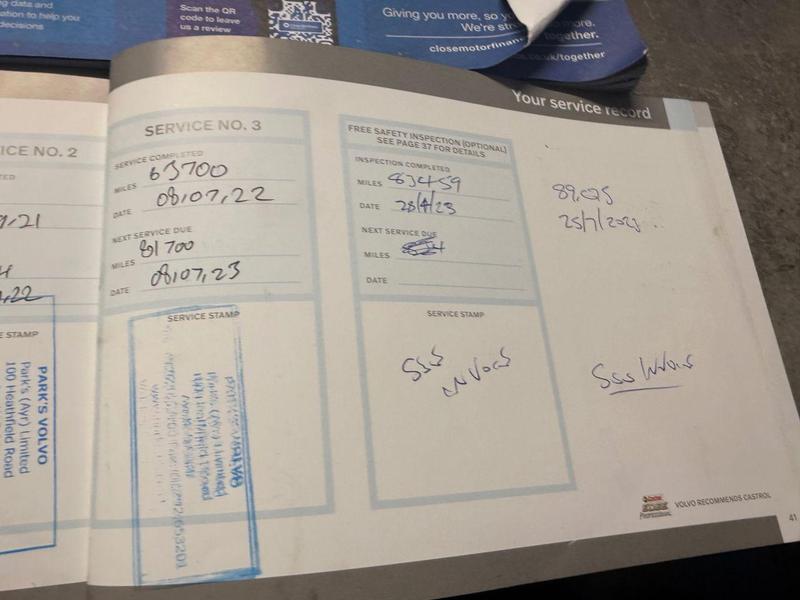 Scan the QR
code to leave
us a review
Giving you more, so y
more.
We're str
together.
closemotorfinan
.co.uk/together
ing data and
ation to help you
decisions
Your service record
ICE NO. 2
TED
7/21
22
E STAMP
PARK'S VOLVO
Park's (Ayr) Limited
100 Heathfield Road
SERVICE NO. 3
SERVICE COMPLETED
MILES 63700
DATE 08,07,22
NEXT SERVICE DUE
MILES 81700
DATE 08,07,23
SERVICE STAMP
FREE SAFETY INSPECTION (OPTIONAL)
SEE PAGE 37 FOR DETAILS
INSPECTION COMPLETED
MILES 83459
DATE 28/4/23
NEXT SERVICE DUE
MILES
DATE
SERVICE STAMP
SSS
89,025
25/7/2023
SSS
Castrol
EDGE
Professional
VOLVO RECOMMENDS CASTROL
41